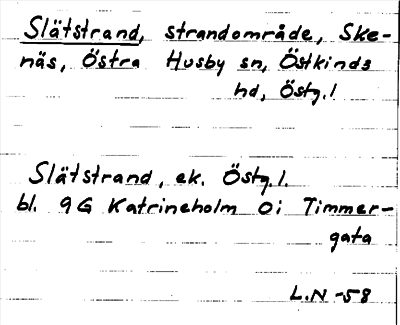 Slätstrand, strandområde, Ske-
näs, Östra Husby sn, Östkinds
hd, Östg.l
Slätstrand, ek. Östg.l.
bl. 9G Katrineholm 0i Timmer-
gata
L.N -58